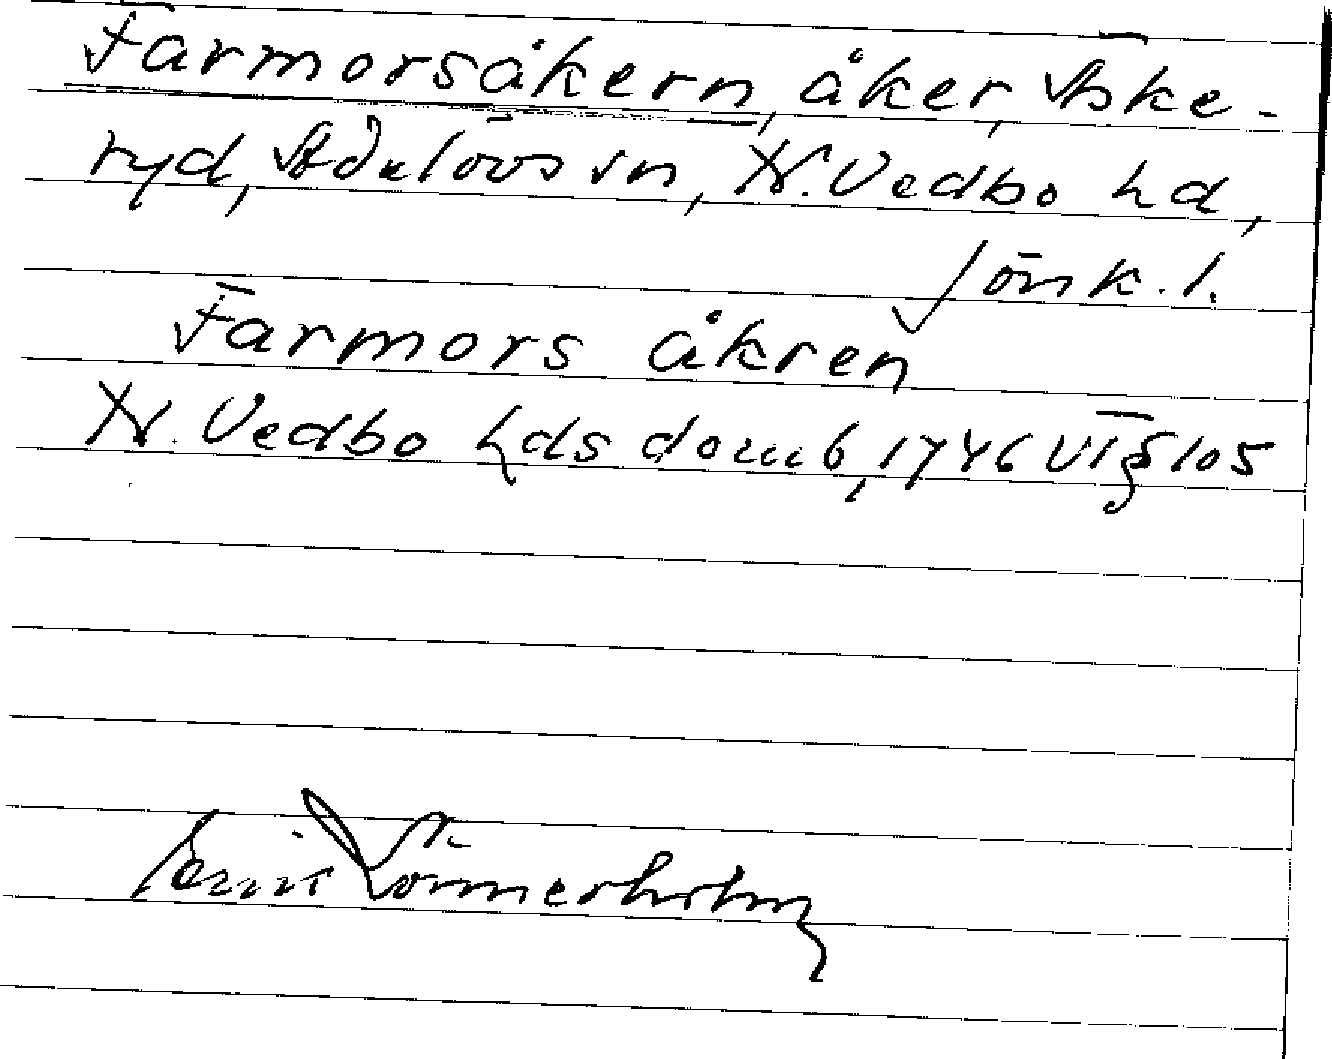 Farmorsåkern, åker, Aske-
ryd, Adelövs sn, N. Vedbo hd,
Jönk. l.
Farmors åkren
N. Vedbo hds domb, 1746 VT § 105
Erik